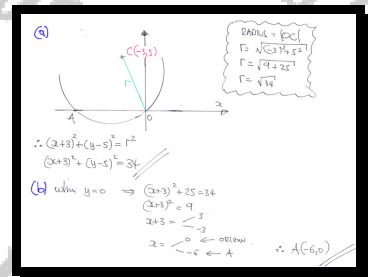 (a)
C(-3,5)
r
x
A
O
RADIUS = |OC|
r = √((-3)²+5²)
r = √(9+25)
r = √34
∴ (x+3)²+(y-5)² = r²
(x+3)²+(y-5)² = 34
(b) when y=0 ⇒ (x+3)²+25=34
(x+3)² = 9
x+3 = 3
-3
x = 0 ← ORIGIN
-6 ← A
∴ A(-6,0)